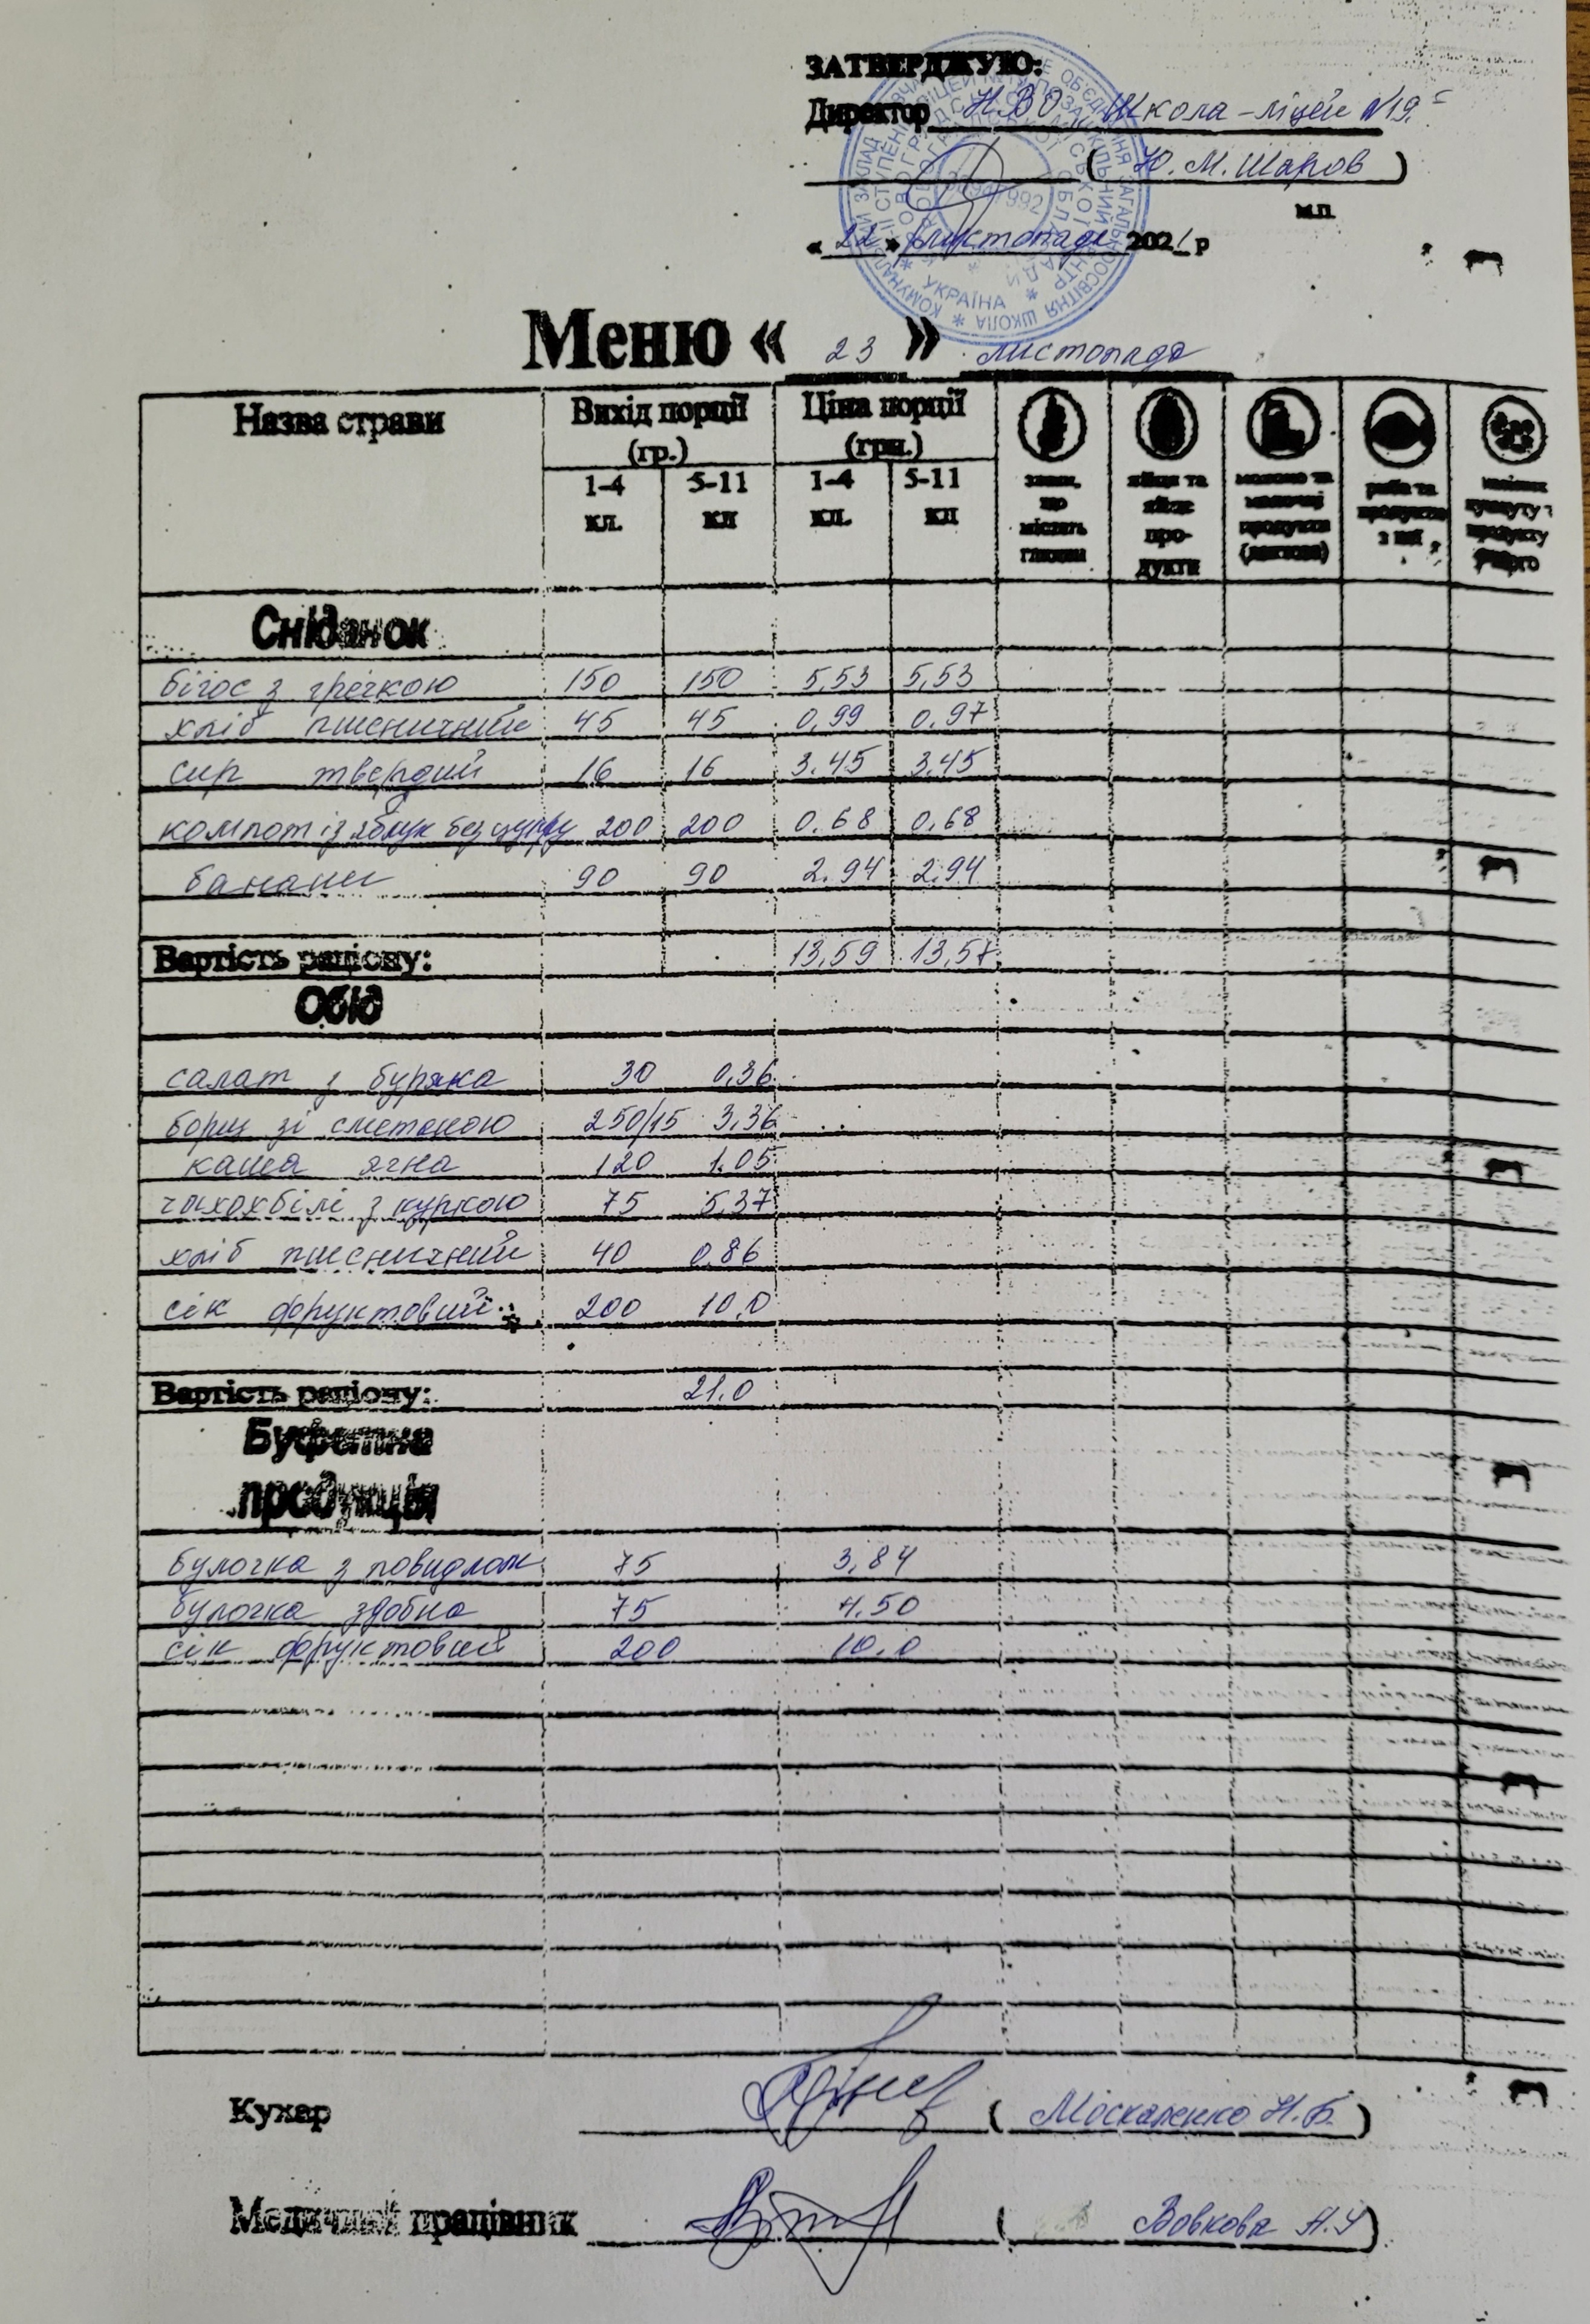 ЗАТВЕРДЖУЮ:
Директор НВО „Школа-ліцей №19"
( Ю. М. Шаров )
м.п.
« 22 » листопада 2021 р
УКРАЇНА
Меню « 23 » листопада
Назва страви Вихід порції (гр.) Ціна порції (грн.)
1-4 кл. 5-11 кл 1-4 кл. 5-11 кл
злаки, що містять глютен
яйця та яйце про- дукти
молоко та молочні продукти (лактоза)
риба та продукти з неї
Сніданок
бігос з гречкою 150 150 5,53 5,53
хліб пшеничний 45 45 0,99 0,97
сир твердий 16 16 3.45 3,45
компот із яблук без цукру 200 200 0.68 0,68
банани 90 90 2.94 2.94
Вартість раціону: 13,59 13,57
Обід
салат з буряка 30 0,36
борщ зі сметаною 250/15 3,36
каша ячна 120 1.05
чахохбілі з куркою 75 5,37
хліб пшеничний 40 0.86
сік фруктовий 200 10,0
Вартість раціону: 21.0
Буфетна
продукція
булочка з повидлом 75 3,84
булочка здобна 75 4.50
сік фруктовий 200 10.0
Кухар ( Москаленко Н.Б. )
Медичний працівник ( Вовкова А.У )